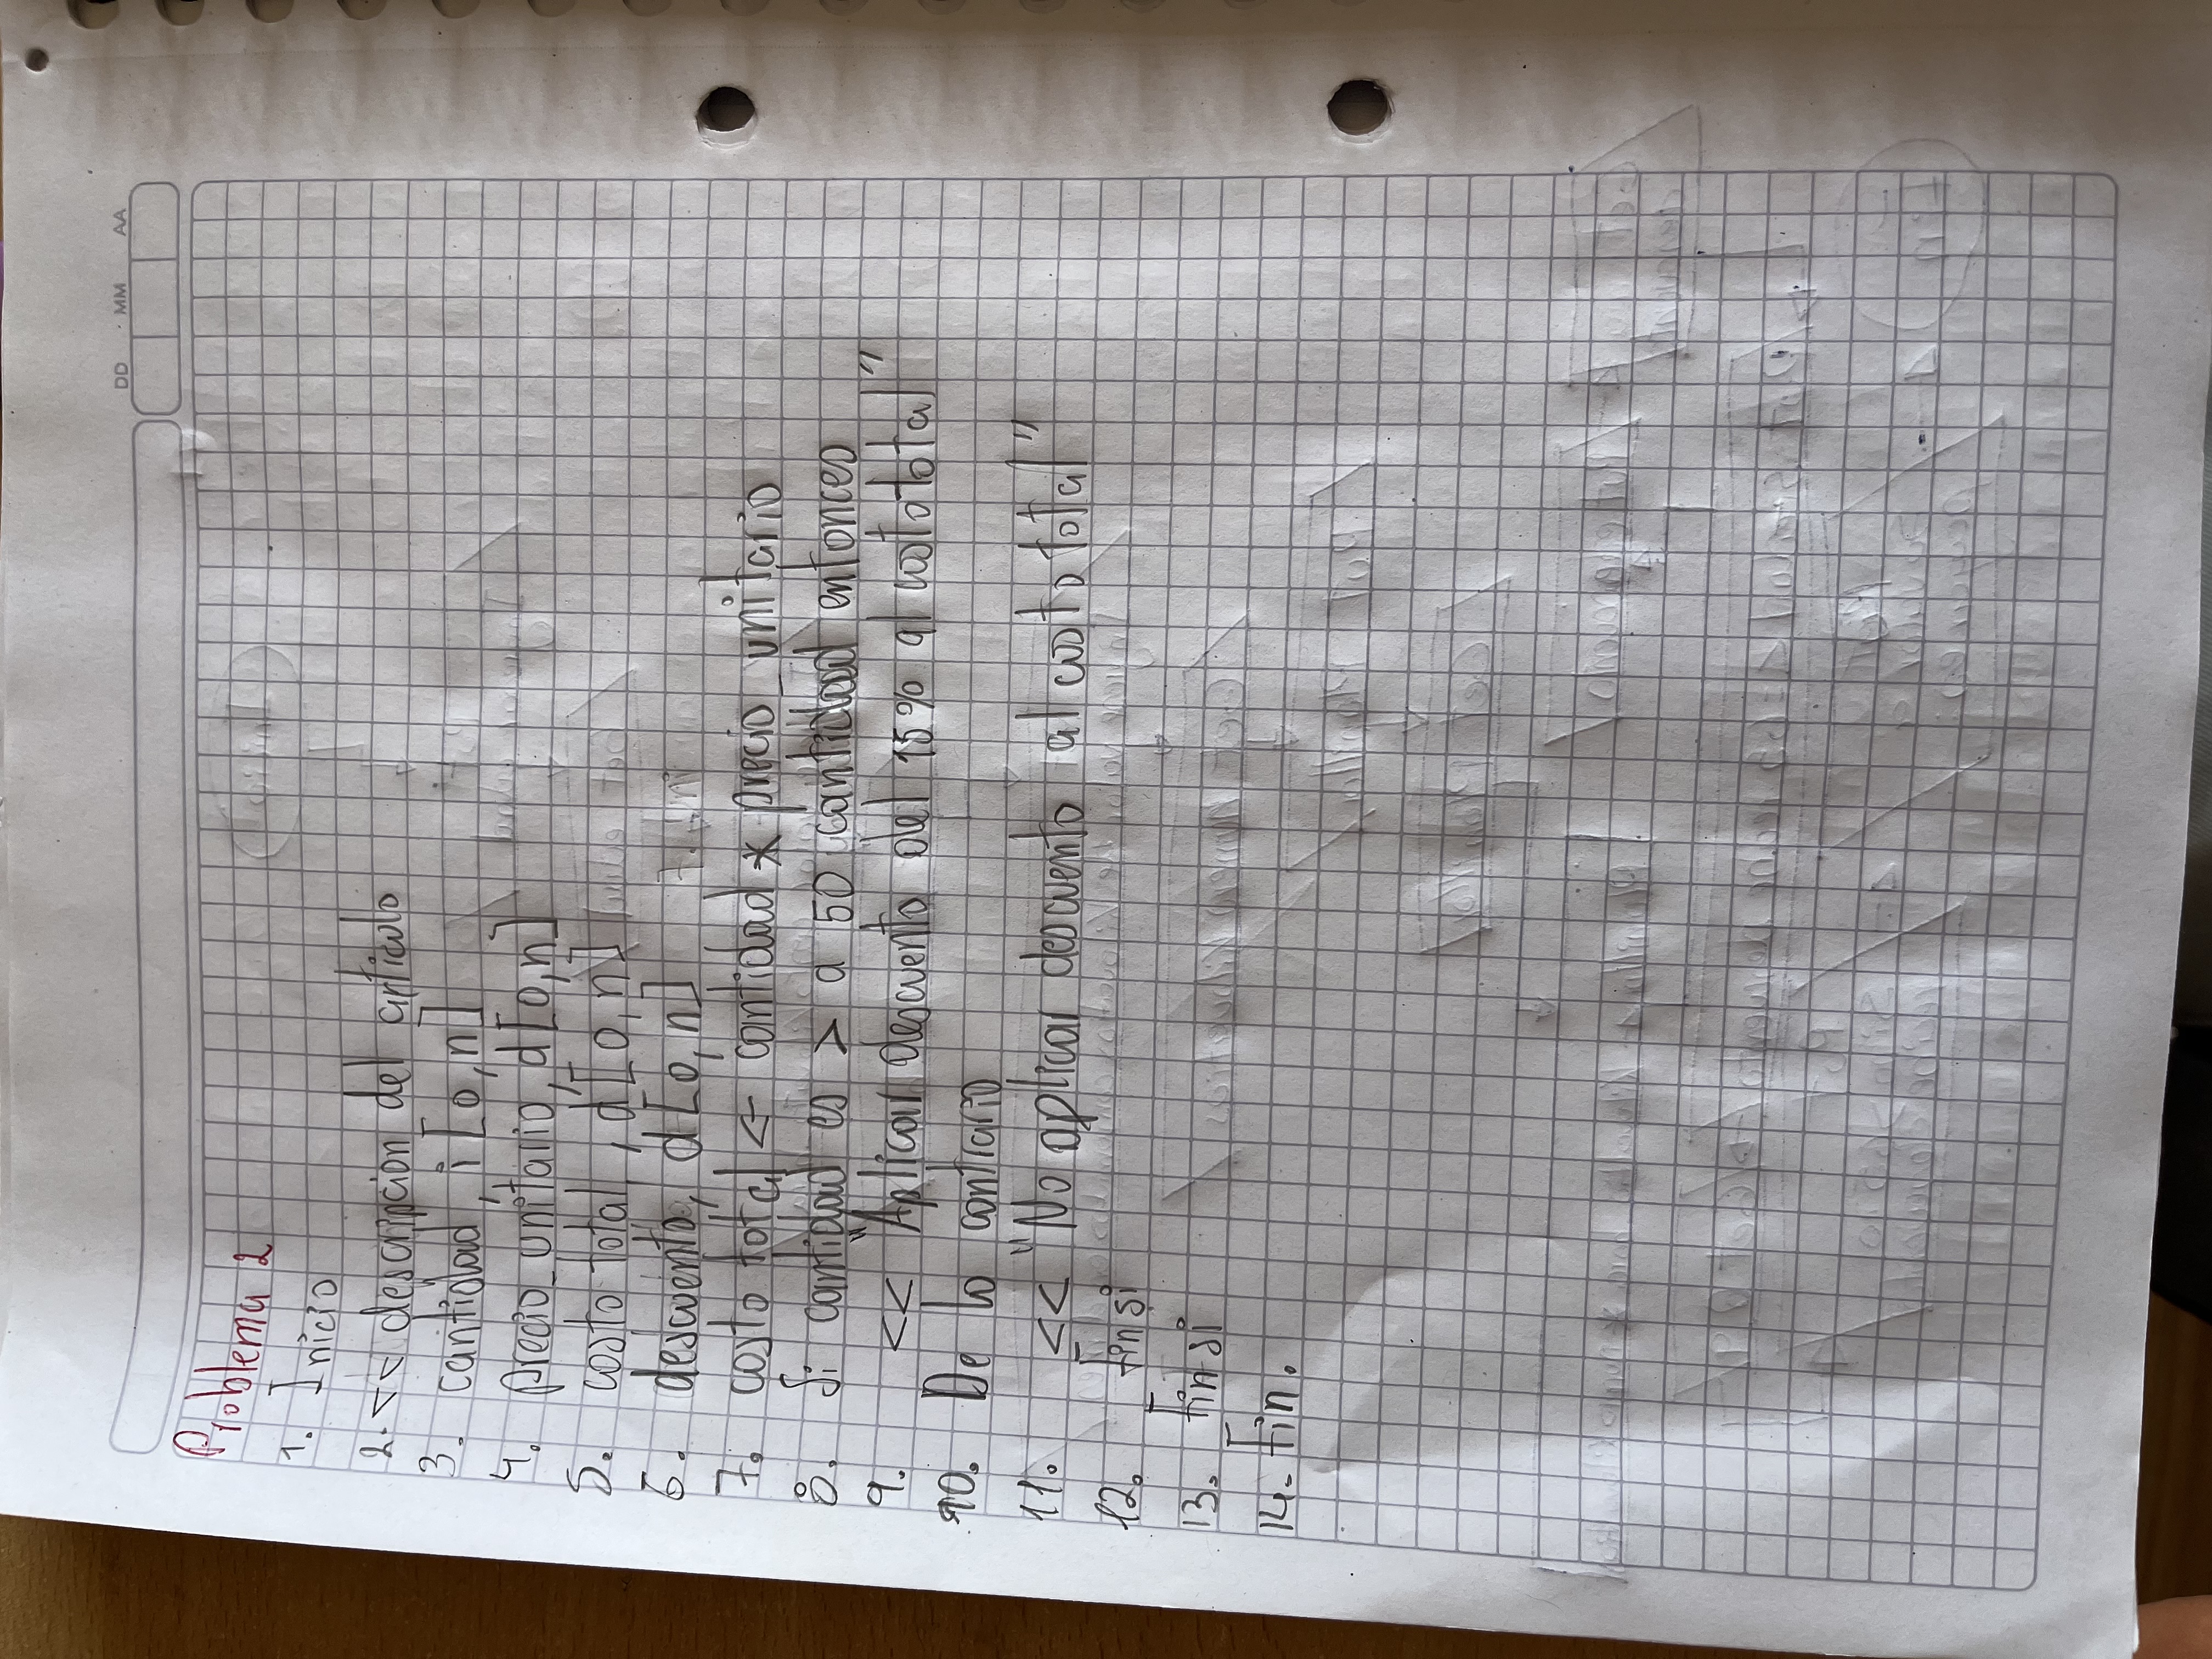 DD MM AA
Problema 2
1. Inicio
2. << descripcion del articulo
3. cantidad, i [0,n]
4. precio_unitario, d[0,n]
5. costo total, d[0,n]
6. descuento, d[0,n]
7. costo total <- cantidad * precio_unitario
8. Si cantidad es > a 50 cantidad entonces
9. << "Aplicar descuento del 15% al costo total"
10. De lo contrario
11. << "No aplicar descuento al costo total"
12. Fin si
13. Fin si
14. Fin.